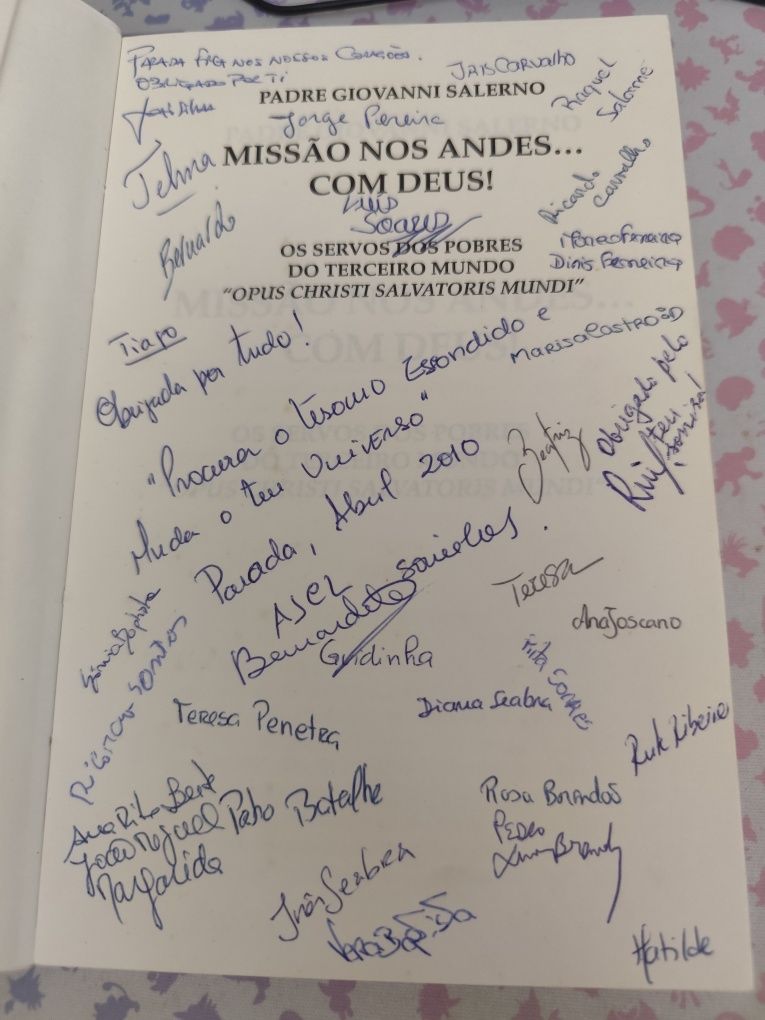 PARADA FICA NOS NOSSOS CORAÇÕES.
OBRIGADO POR TI
JAIS CARVALHO
PADRE GIOVANNI SALERNO
Raquel
Salomé
Jorge Pereira
MISSÃO NOS ANDES...
COM DEUS!
Telma
Ricardo
Carvalho
Luís
Soares
Bernardo
OS SERVOS DOS POBRES
DO TERCEIRO MUNDO
"OPUS CHRISTI SALVATORIS MUNDI"
Dinis Ferreira
Tiago
Obrigada por tudo!
MARISA CASTRO
"Procura o tesouro Escondido e
Muda o teu Universo"
Parada, Abril 2010
Beatriz
Obrigado pelo
teu
sorriso!
Rui
Sónia Baptista
Ricardo Santos
Bernardete
Guidinha
Teresa
Ana Toscano
Rita Soares
Teresa Penetra
Diana Seabra
Rute Ribeiro
Ana Rita Bento
João Miguel
Margarida
Batalha
Rosa Brandão
PEDRO
Inês Seabra
Vera Baptista
Matilde